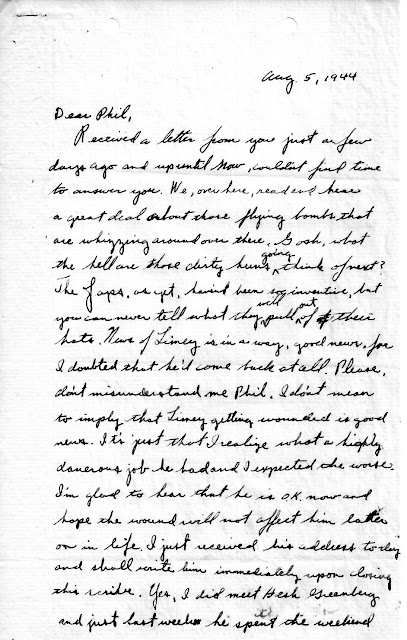 Aug. 5, 1944
Dear Phil,
Received a letter from you just a few
days ago and up until now, couldn't find time
to answer you. We, over here, read and hear
a great deal about those flying bombs that
are whizzing around over there. Gosh, what
the hell are those dirty huns going think of next?
The Japs, as yet, havn't been so inventive, but
you can never tell what they will pull out of their
hats. News of Limey is in a way, good news, for
I doubted that he'd come back at all. Please,
don't misunderstand me Phil, I don't mean
to imply that Limey getting wounded is good
news. It's just that I realize what a highly
dangerous job he had and I expected the worse.
I'm glad to hear that he is O.K. now and
hope the wound will not affect him latter
on in life. I just received his address to-day
and shall write him immediately upon closing
this scribe. Yes, I did meet Hesh Greenberg
and just last week he spent the weekend